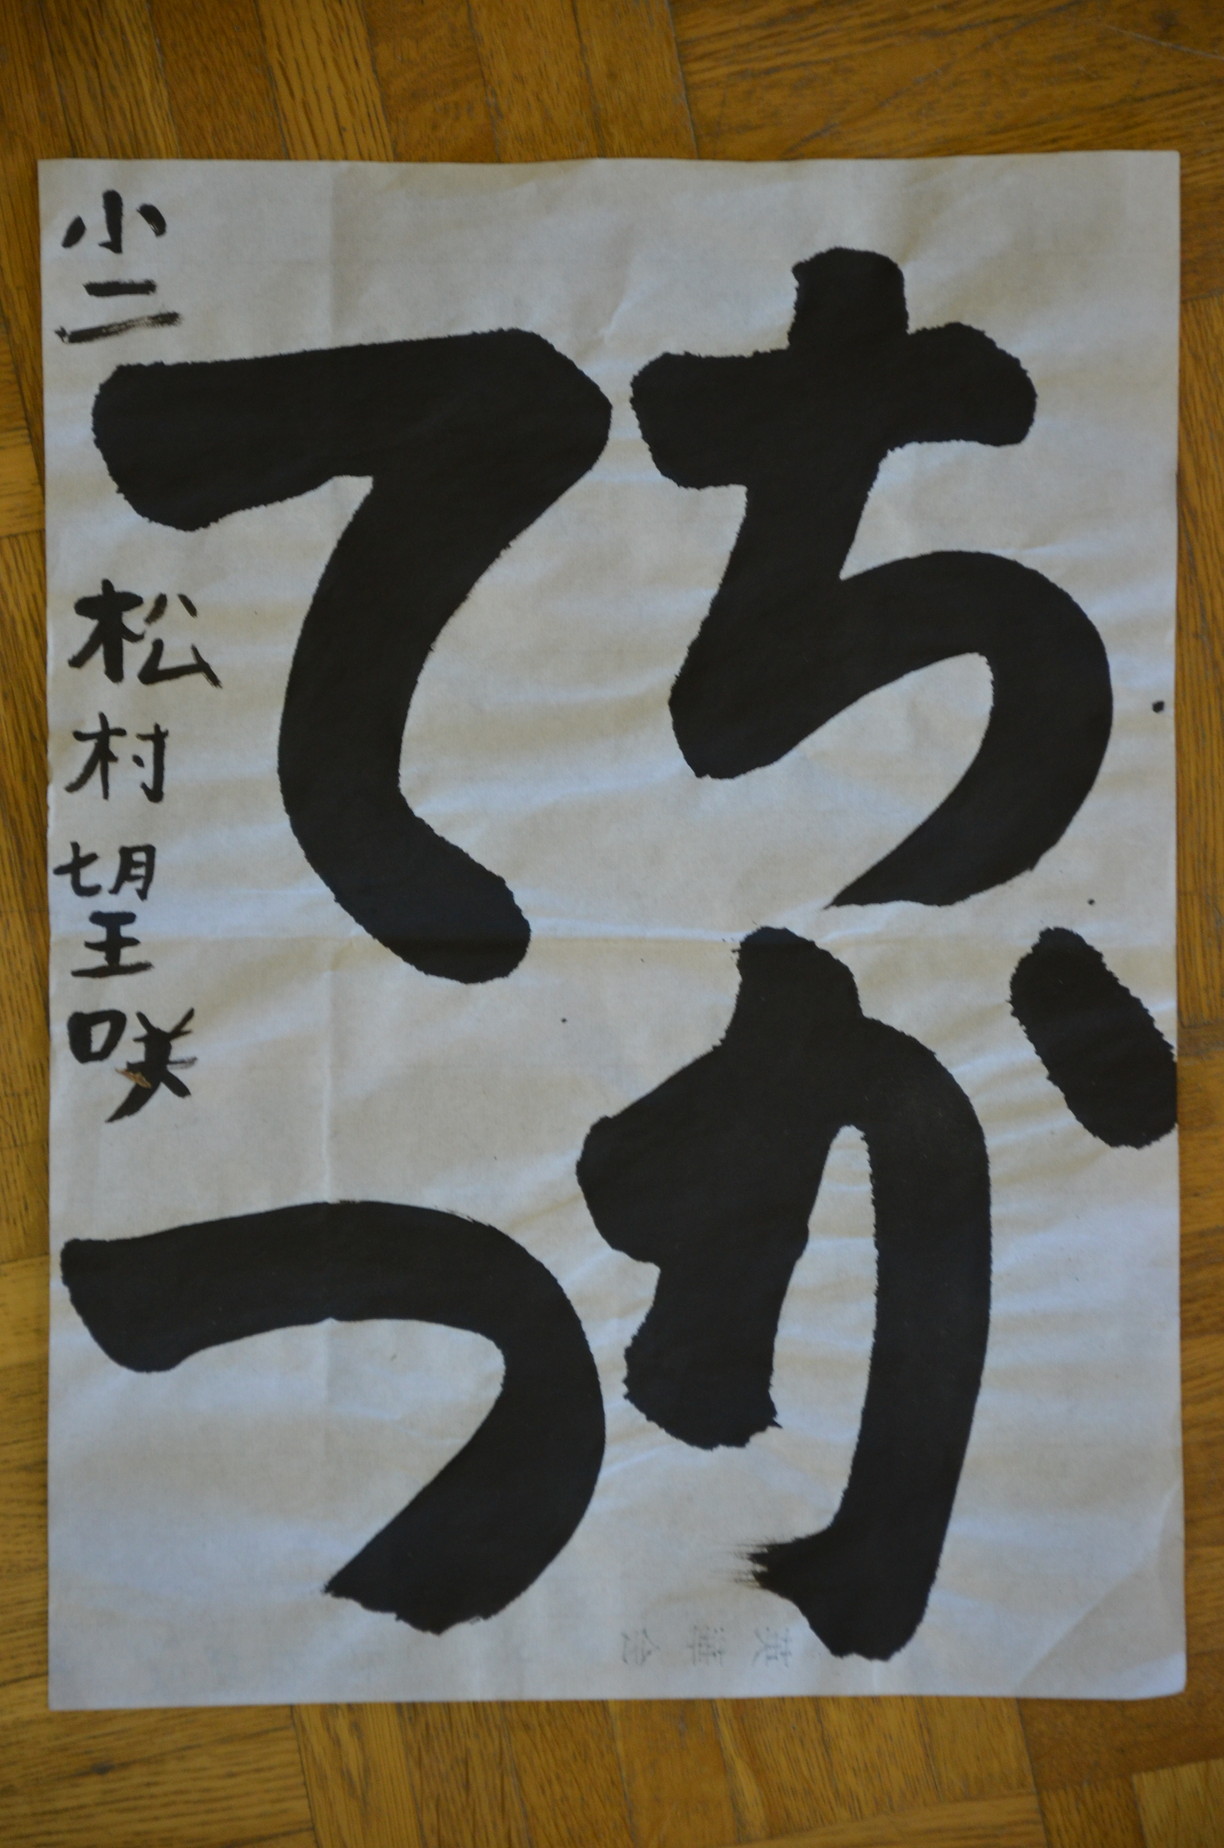 ちか
てつ
小二 松村望咲